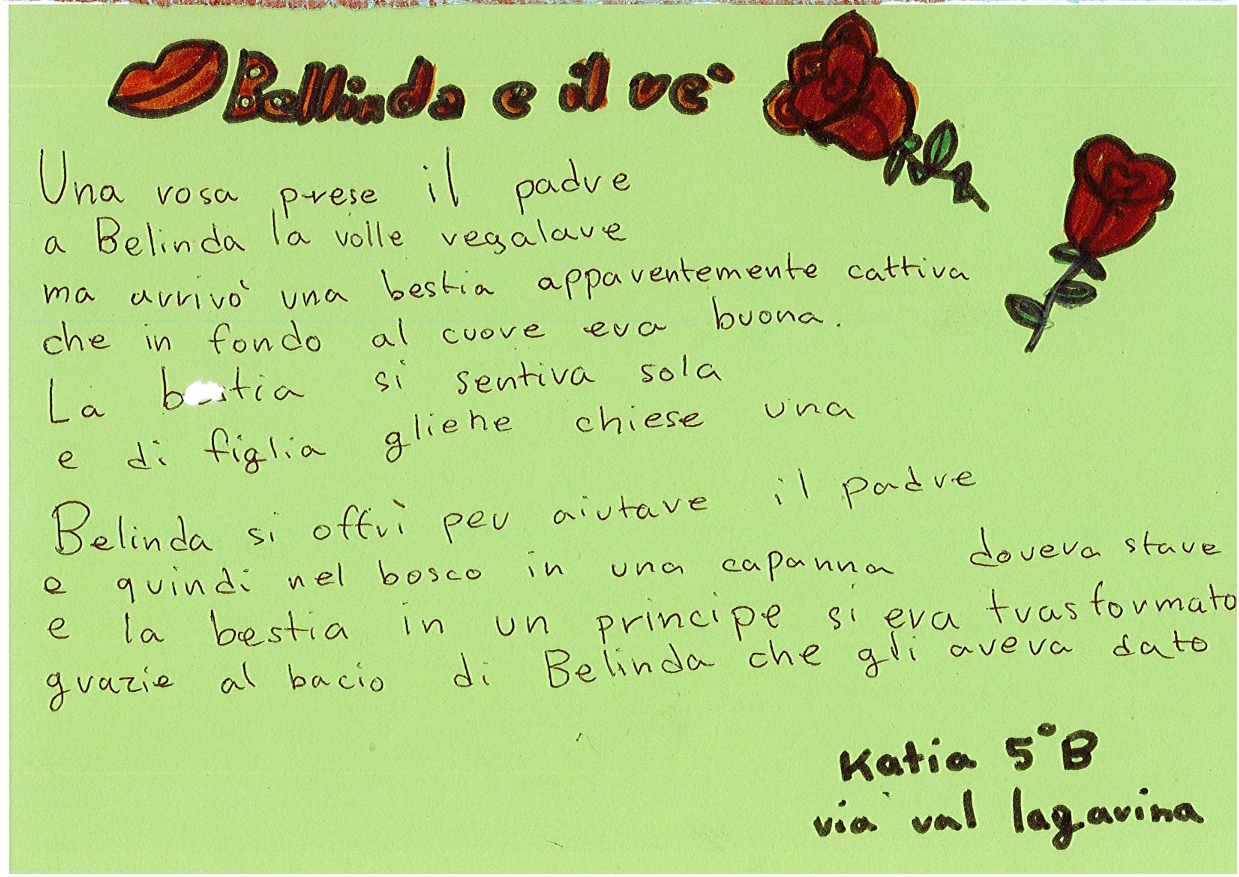 Bellinda e il re'
Una rosa prese il padre
a Belinda la volle regalare
ma arrivo' una bestia apparentemente cattiva
che in fondo al cuore era buona.
La bestia si sentiva sola
e di figlia gliene chiese una
Belinda si offrì per aiutare il padre
e quindi nel bosco in una capanna doveva stare
e la bestia in un principe si era trasformato
grazie al bacio di Belinda che gli aveva dato
Katia 5°B
via val lagarina